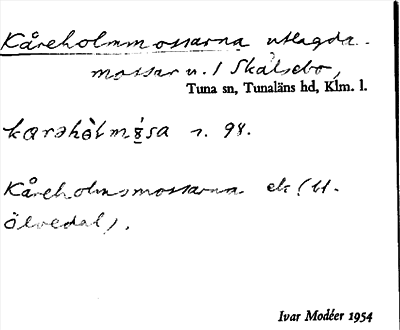 Kåreholmmossarna utlagda
mossar u. / Skälsebo,
Tuna sn, Tunaläns hd, Klm. l.
kɑrəhòlmósa s. 98.
Kåreholmsmossarna ek (U.
Ölvedal).
Ivar Modéer 1954